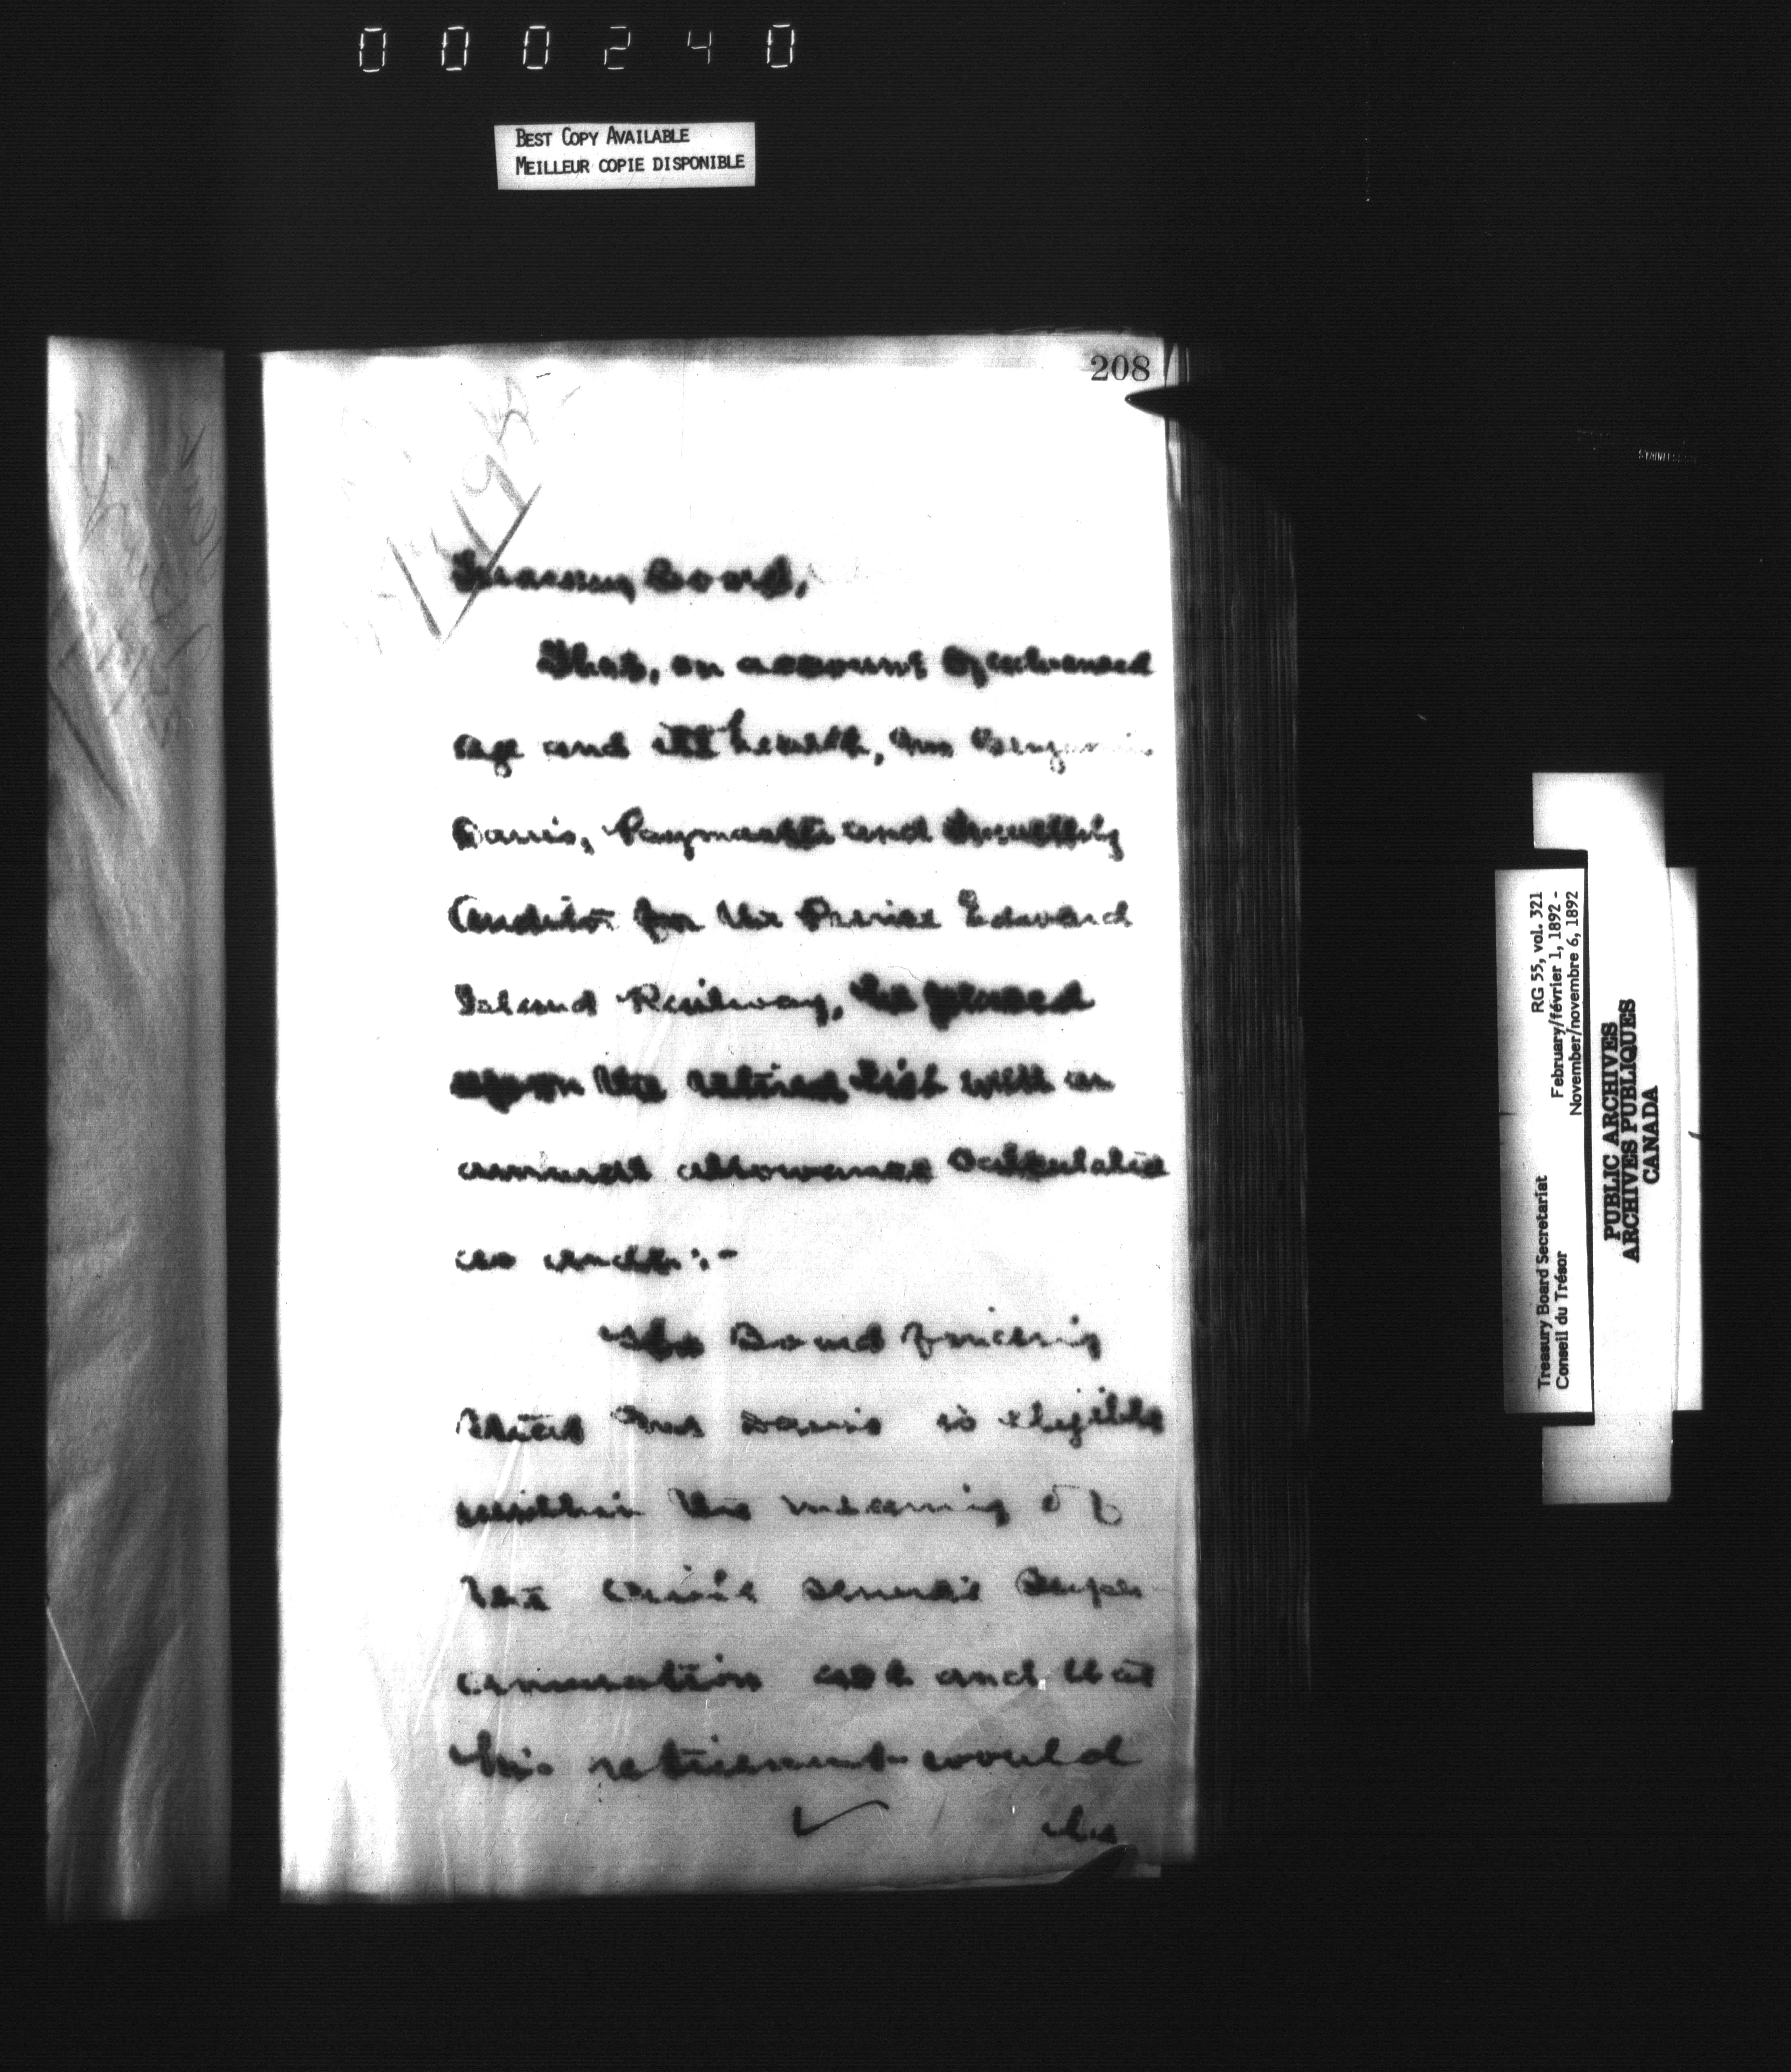 000240
BEST COPY AVAILABLE
MEILLEUR COPIE DISPONIBLE
208
Treasury Board,
That, on account of advanced
age and ill health, Mr Benjamin
Davis, Paymaster and Travelling
Auditor for the Prince Edward
Island Railway, be placed
upon the retired list with an
annual allowance calculated
as under:-
The Board finding
that Mr Davis is eligible
within the meaning of
the Civil Service Super-
annuation Act and that
his retirement would
be
Treasury Board Secretariat RG 55, vol. 321
Conseil du Trésor February/février 1, 1892 -
November/novembre 6, 1892
PUBLIC ARCHIVES
ARCHIVES PUBLIQUES
CANADA